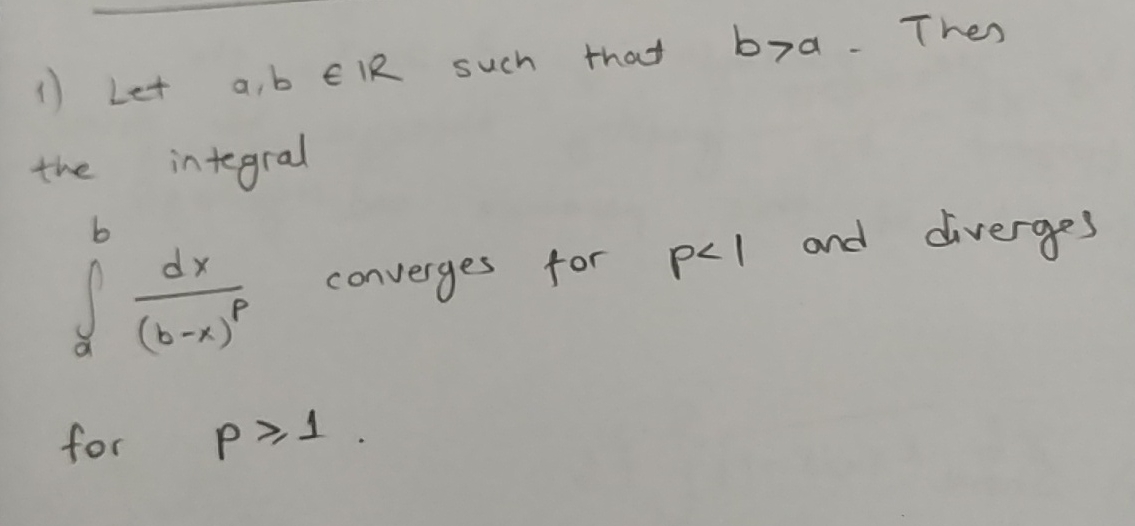 1) Let a,b ∈ IR such that b>a. Then
the integral
∫_a^b dx/(b-x)^p converges for p<1 and diverges
for p ≥ 1.